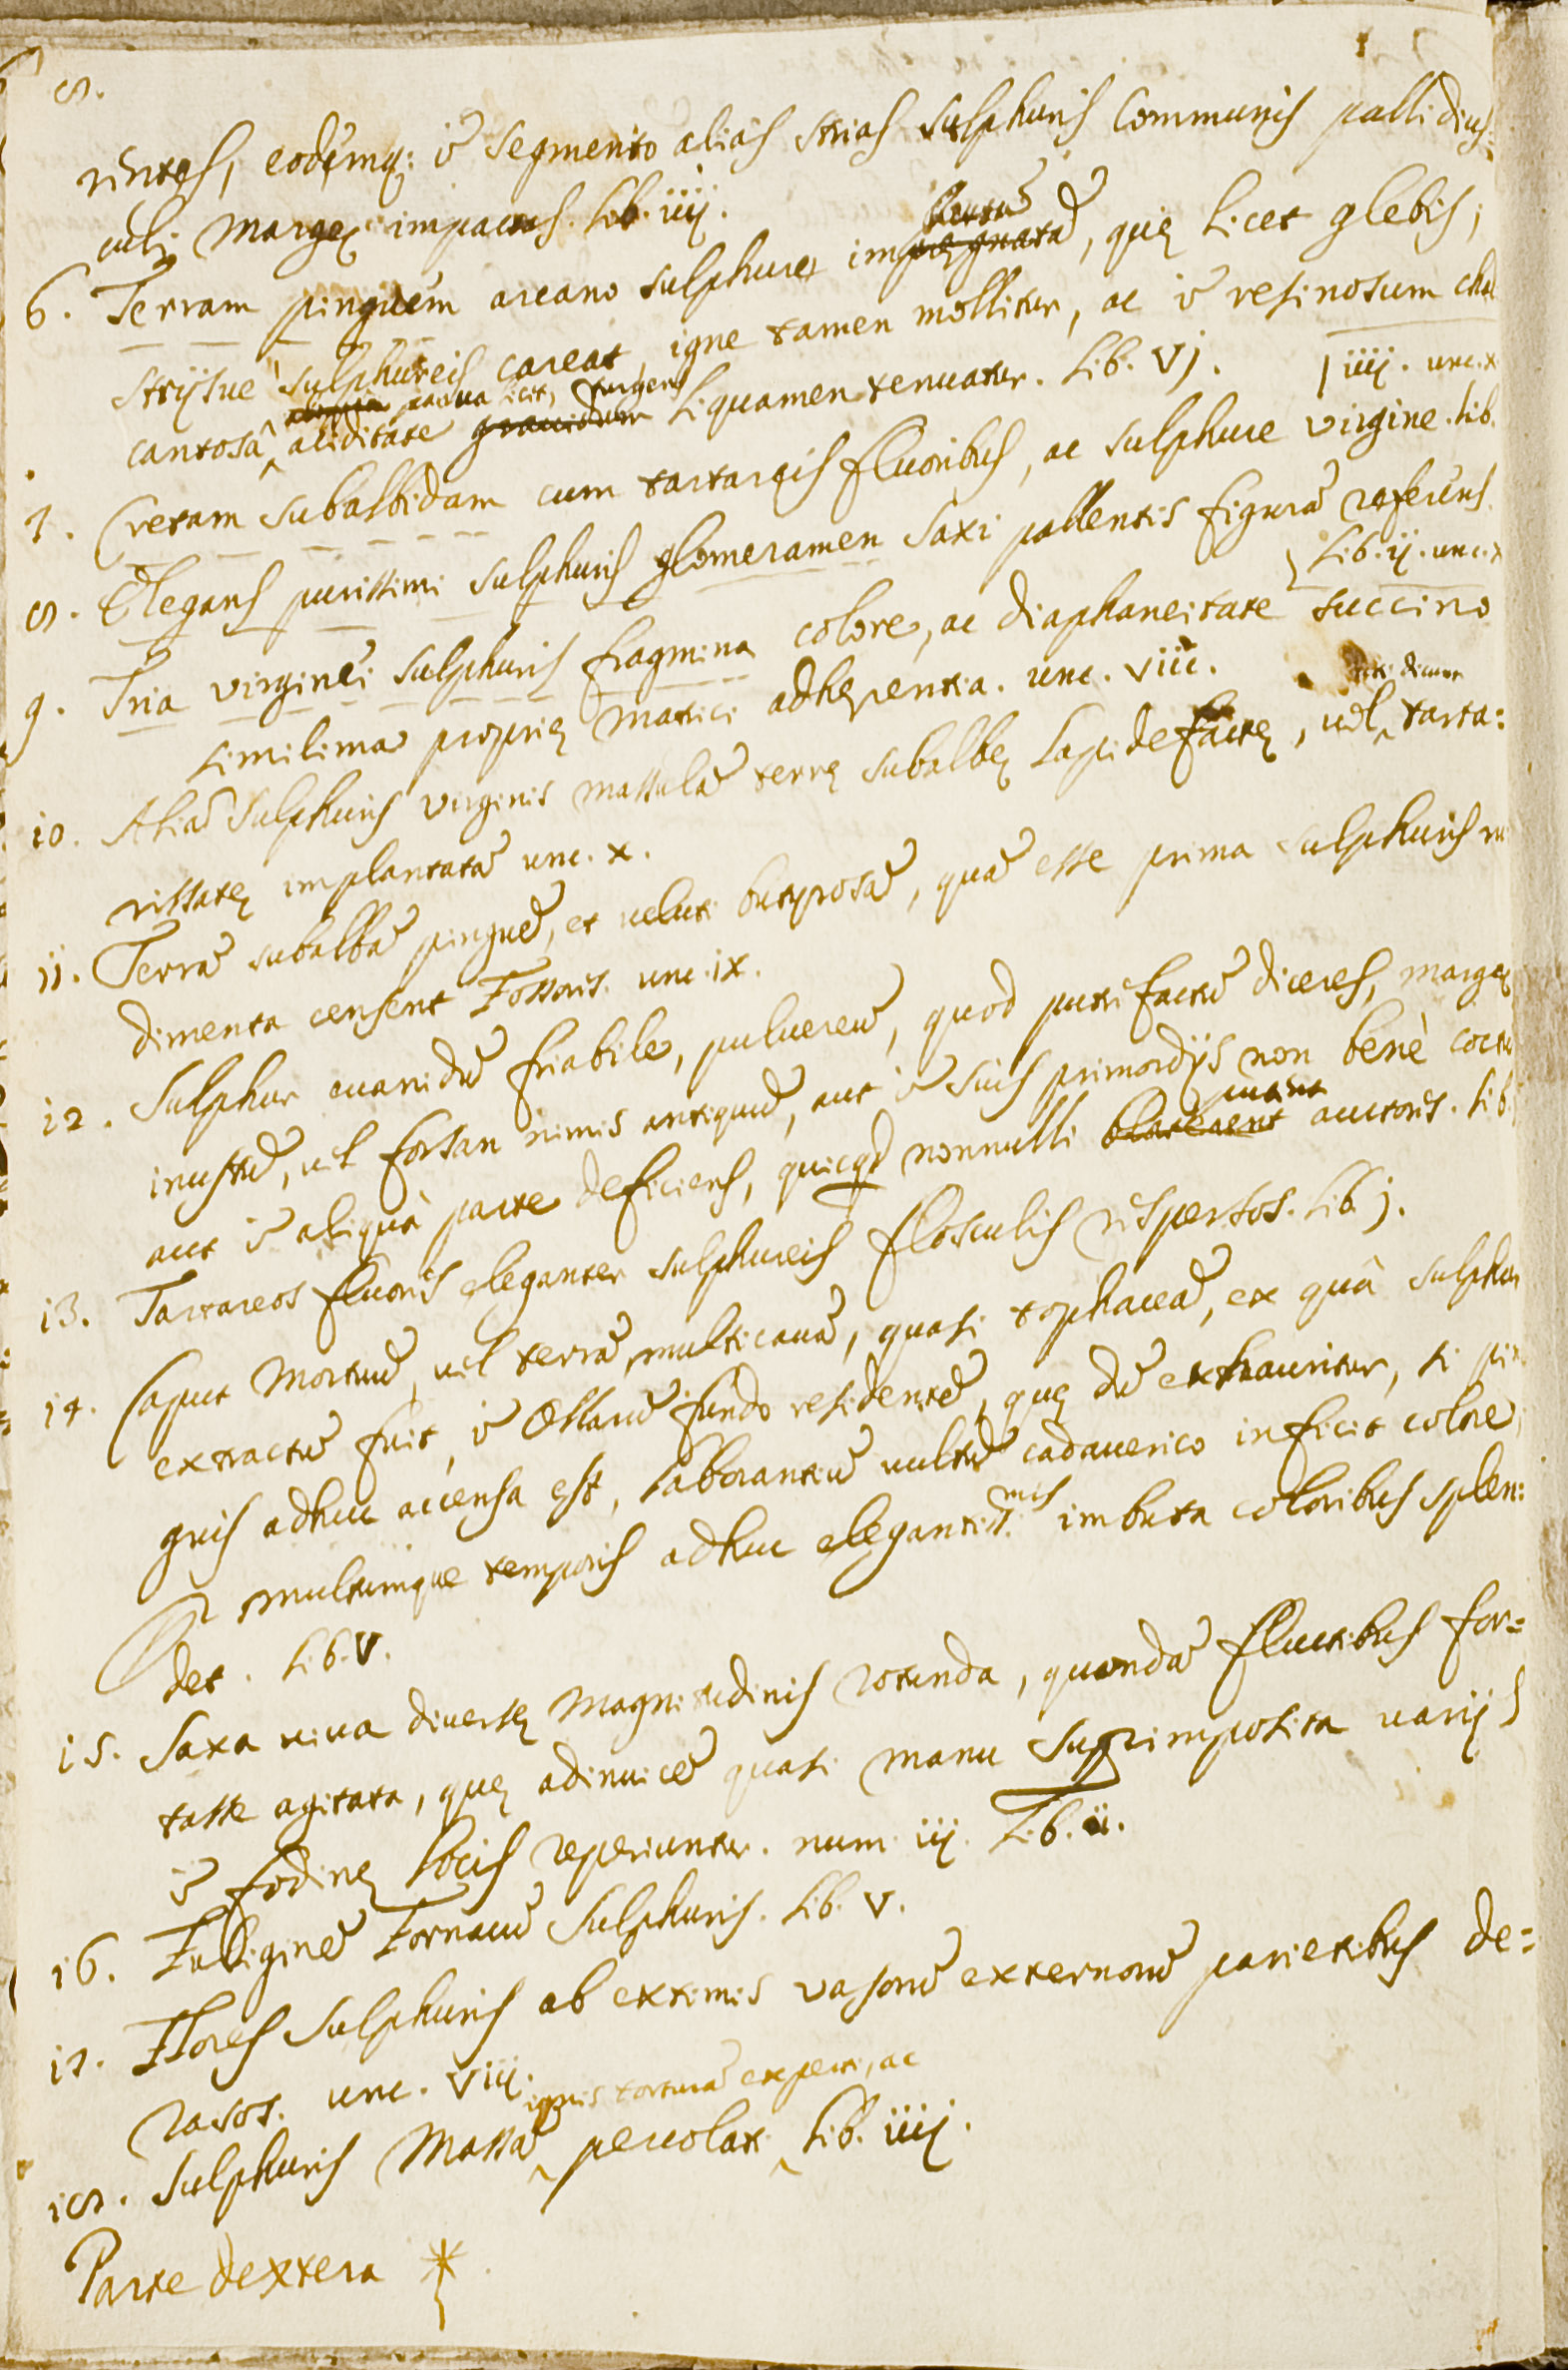 8.
rentes, eodémq; ĩ segmento aliàs strias sulphuris communis pallidius=
culi margę impactas. Lib. iiij.
6. Terram pinguem arcano sulphure imprę̶g̶n̶a̶t̶ã̶, quę licet glebis,
strijsue sulphureis careat, igne tamen mollitur, ac ĩ resinosum
parua licet, turgens
cantosâ aliditate g̶r̶a̶u̶i̶d̶u̶m̶ liquamen tenuatur. Lib. vj.
7. Cretam subalbidam cum tartaręis fluoribus, ac sulphure virgine. Lib.
iiij. unc. x
8. Elegans purissimi sulphuris glomeramen saxi pallentis figurã referens.
Lib. ij. unc. x
9. Tria virginei sulphuris fragmina colore, ac diaphaneitate succino
similima proprię matrici adhęrentia. unc. viii.
10. Aliã sulphuris virginis massulã terrę subalbę lapidefactę, uel tarta=
rissatę implantatã unc. x.
11. Terrã subalbã pinguẽ, et ueluti butyrosã, quã esse prima sulphuris ru
dimenta censent Fossores. unc. ix.
12. Sulphur euanidũ friabile, puluereũ, quod putrifactũ diceres, margę
inustũ, uel forsan nimis antiquũ, aut ĩ suis primordijs non benè coctũ
aut ĩ aliquà parte deficiens, quicqd nonnulli auctores. Lib.
13. Tartareos fluores eleganter sulphureis flosculis respersos. Lib. j.
14. Caput mortuũ, uel terrã multicauã, quasi tophaceã, ex quâ sulphur
extractũ fuit, ĩ ollarũ fundo residentẽ, quę dũ exhauritur, si pin
guis adhuc accensa est, laborantiũ uultũ cadauerico inficit colore,
multumque temporis adhuc elegantiss.mis imbuta coloribus splen=
det. Lib. v.
15. Saxa uiua diuersę magnitudinis rotunda, quondã fluctibus for=
tasse agitata, quę adinuicẽ quasi manu suprimposita varijs
ĩ fodinę locis reperiuntur. num. iij. Lib. ii.
16. Fuliginẽ Fornacũ Sulphuris. Lib. v.
17. Flores sulphuris ab extimis vasorũ externorũ parietibus de=
rasos. unc. viij.
ignis torturã experti, ac
18. Sulphuris Massã percolati Lib. iiij.
Parte dextera *